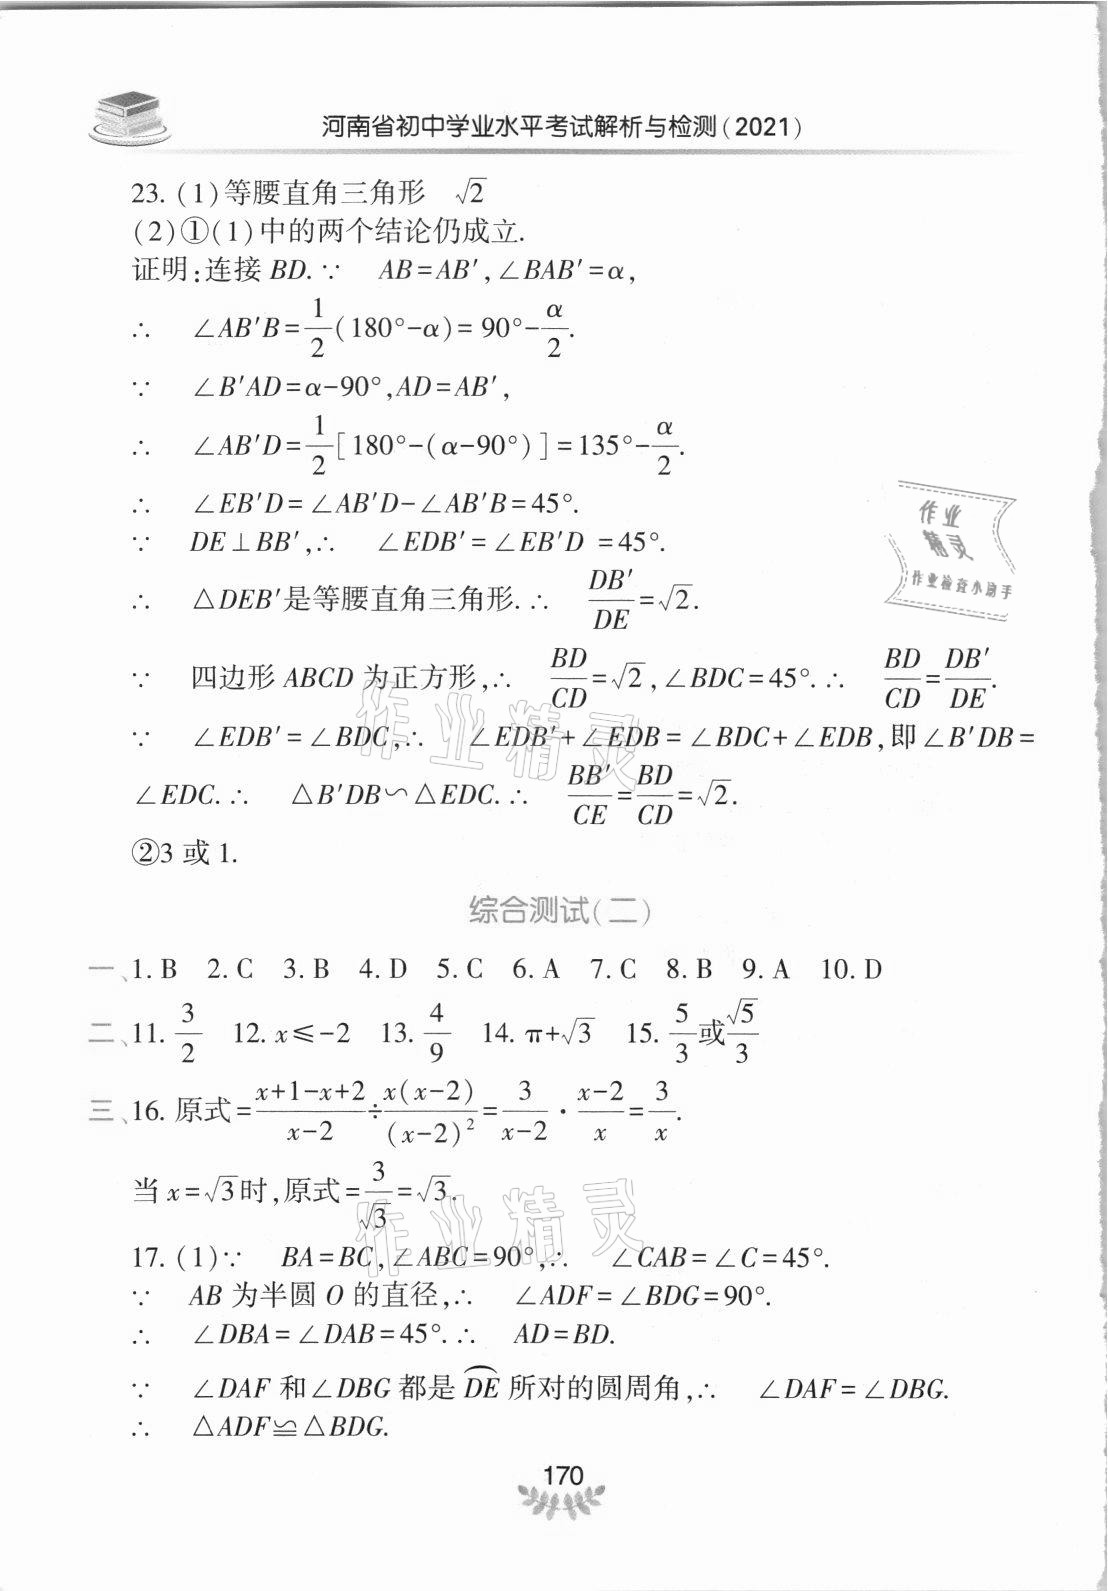 河南省初中学业水平考试解析与检测(2021)
23. (1)等腰直角三角形 √2
(2)①(1)中的两个结论仍成立.
证明:连接 BD. ∵ AB=AB′,∠BAB′=α,
∴ ∠AB′B=1/2(180°-α)=90°-α/2.
∵ ∠B′AD=α-90°,AD=AB′,
∴ ∠AB′D=1/2[180°-(α-90°)]=135°-α/2.
∴ ∠EB′D=∠AB′D-∠AB′B=45°.
∵ DE⊥BB′,∴ ∠EDB′=∠EB′D =45°.
∴ △DEB′是等腰直角三角形.∴ DB′/DE=√2.
∵ 四边形 ABCD 为正方形,∴ BD/CD=√2,∠BDC=45°.∴ BD/CD=DB′/DE.
∵ ∠EDB′=∠BDC,∴ ∠EDB′+∠EDB=∠BDC+∠EDB,即∠B′DB=
∠EDC.∴ △B′DB∽△EDC.∴ BB′/CE=BD/CD=√2.
②3 或 1.
综合测试(二)
一、1. B 2. C 3. B 4. D 5. C 6. A 7. C 8. B 9. A 10. D
二、11. 3/2 12. x≤-2 13. 4/9 14. π+√3 15. 5/3或√5/3
三、16. 原式=(x+1-x+2)/(x-2)÷x(x-2)/(x-2)²=3/(x-2)·(x-2)/x=3/x.
当 x=√3时,原式=3/√3=√3.
17. (1)∵ BA=BC,∠ABC=90°,∴ ∠CAB=∠C=45°.
∵ AB 为半圆 O 的直径,∴ ∠ADF=∠BDG=90°.
∴ ∠DBA=∠DAB=45°.∴ AD=BD.
∵ ∠DAF 和∠DBG 都是 DE⌒ 所对的圆周角,∴ ∠DAF=∠DBG.
∴ △ADF≌△BDG.
170
作业
精灵
作业检查小助手
作业精灵
作业精灵